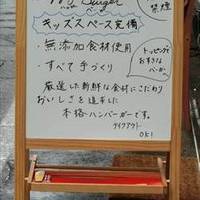 Burger
キッズスペース完備
・無添加食材使用
・すべて手づくり
トッピングで
厳選した新鮮な食材にこだわり
おいしさを追求した
本格ハンバーガーです。
テイクアウト
OK!
禁煙